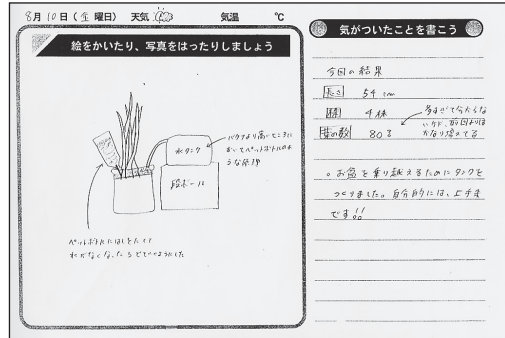 8月10日（金曜日） 天気 気温 ℃
絵をかいたり、写真をはったりしましょう
水タンク
段ボール
バケツより高いところに
おいてペットボトルのよ
うな原理
ペットボトルに
水がなくなったら
気がついたことを書こう
今回の結果
長さ 54cm
4株
80?
多すぎて今わからな
いケド、前回よりは
かなり増えてる
。お盆を乗り越えるためにタンクを
つくりました。自分的には、上手ま
です!!